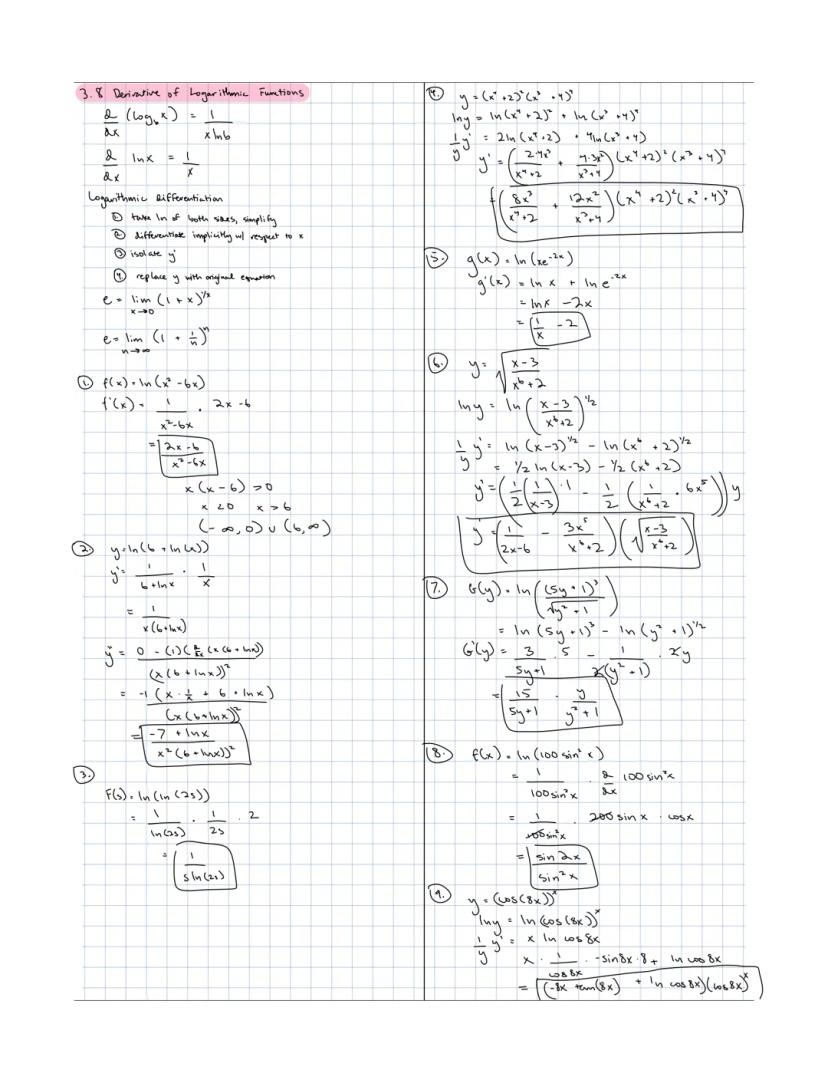 3.8 Derivative of Logarithmic Functions
d/dx (log_b x) = 1/(x ln b)
d/dx ln x = 1/x
Logarithmic Differentiation
① take ln of both sides, simplify
② differentiate implicitly w/ respect to x
③ isolate y'
④ replace y with original equation
e = lim x→0 (1 + x)^(1/x)
e = lim n→∞ (1 + 1/n)^n
① f(x) = ln(x² - 6x)
f'(x) = 1/(x² - 6x) · 2x - 6
= (2x - 6)/(x² - 6x)
x(x - 6) > 0
x < 0 x > 6
(-∞, 0) ∪ (6, ∞)
② y = ln(6 + ln(x))
y' = 1/(6 + ln x) · 1/x
= 1/(x(6 + ln x))
y'' = (0 - (1)(d/dx (x(6 + ln x))))/(x(6 + ln x))²
= -1(x · 1/x + 6 + ln x)/(x(6 + ln x))²
= (-7 + ln x)/(x²(6 + ln x))²
③
F(s) = ln(ln(2s))
= 1/ln(2s) · 1/2s · 2
= 1/(s ln(2s))
④ y = (x⁴ + 2)²(x³ + 4)⁴
ln y = ln(x⁴ + 2)² + ln(x³ + 4)⁴
1/y y' = 2 ln(x⁴ + 2) + 4 ln(x³ + 4)
y' = (2·4x³/(x⁴ + 2) + 4·3x²/(x³ + 4))(x⁴ + 2)²(x³ + 4)⁴
(8x³/(x⁴ + 2) + 12x²/(x³ + 4))(x⁴ + 2)²(x³ + 4)⁴
⑤ g(x) = ln(xe^(-2x))
g'(x) = ln x + ln e^(-2x)
= ln x - 2x
= 1/x - 2
⑥ y = √((x - 3)/(x⁶ + 2))
ln y = ln((x - 3)/(x⁶ + 2))^(1/2)
1/y y' = ln(x - 3)^(1/2) - ln(x⁶ + 2)^(1/2)
= 1/2 ln(x - 3) - 1/2 (x⁶ + 2)
y' = (1/2 (1/(x - 3)) · 1 - 1/2 (1/(x⁶ + 2) · 6x⁵)) y
y' = (1/(2x - 6) - 3x⁵/(x⁶ + 2))(√((x - 3)/(x⁶ + 2)))
⑦ G(y) = ln((5y + 1)³/√(y² + 1))
= ln(5y + 1)³ - ln(y² + 1)^(1/2)
G'(y) = 3/(5y + 1) · 5 - 1/(2(y² + 1)) · 2y
= 15/(5y + 1) - y/(y² + 1)
⑧ f(x) = ln(100 sin² x)
= 1/(100 sin² x) · d/dx 100 sin² x
= 1/(100 sin² x) · 200 sin x · cos x
= sin 2x/sin² x
⑨ y = (cos(8x))^x
ln y = ln(cos(8x))^x
1/y y' = x ln cos 8x
x · 1/cos 8x · -sin 8x · 8 + ln cos 8x
= (-8x tan(8x) + ln cos 8x)(cos 8x)^x